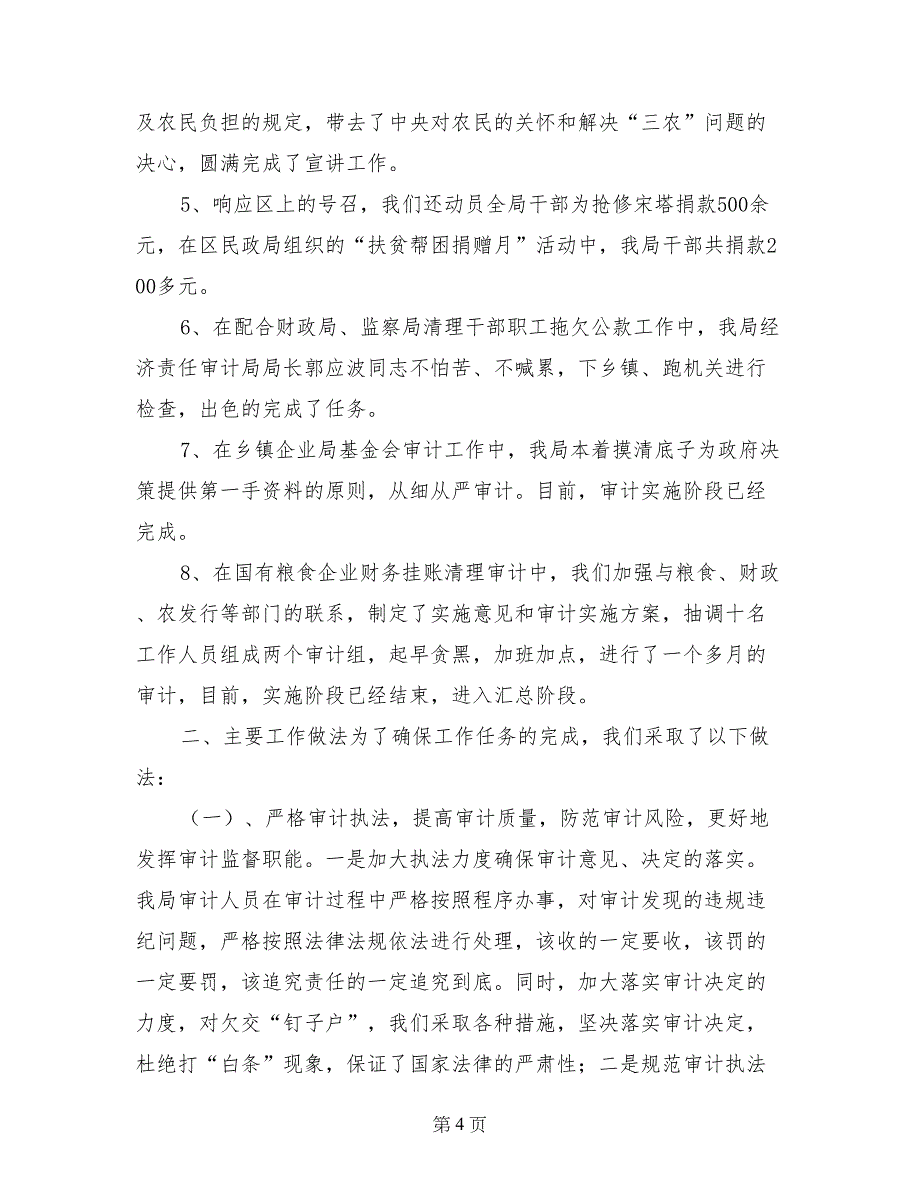 及农民负担的规定，带去了中央对农民的关怀和解决“三农”问题的
决心，圆满完成了宣讲工作。
5、响应区上的号召，我们还动员全局干部为抢修宋塔捐款500余
元，在区民政局组织的“扶贫帮困捐赠月”活动中，我局干部共捐款2
00多元。
6、在配合财政局、监察局清理干部职工拖欠公款工作中，我局经
济责任审计局局长郭应波同志不怕苦、不喊累，下乡镇、跑机关进行
检查，出色的完成了任务。
7、在乡镇企业局基金会审计工作中，我局本着摸清底子为政府决
策提供第一手资料的原则，从细从严审计。目前，审计实施阶段已经
完成。
8、在国有粮食企业财务挂账清理审计中，我们加强与粮食、财政
、农发行等部门的联系，制定了实施意见和审计实施方案，抽调十名
工作人员组成两个审计组，起早贪黑，加班加点，进行了一个多月的
审计，目前，实施阶段已经结束，进入汇总阶段。
二、主要工作做法为了确保工作任务的完成，我们采取了以下做
法：
（一）、严格审计执法，提高审计质量，防范审计风险，更好地
发挥审计监督职能。一是加大执法力度确保审计意见、决定的落实。
我局审计人员在审计过程中严格按照程序办事，对审计发现的违规违
纪问题，严格按照法律法规依法进行处理，该收的一定要收，该罚的
一定要罚，该追究责任的一定追究到底。同时，加大落实审计决定的
力度，对欠交“钉子户”，我们采取各种措施，坚决落实审计决定，
杜绝打“白条”现象，保证了国家法律的严肃性；二是规范审计执法
第 4 页